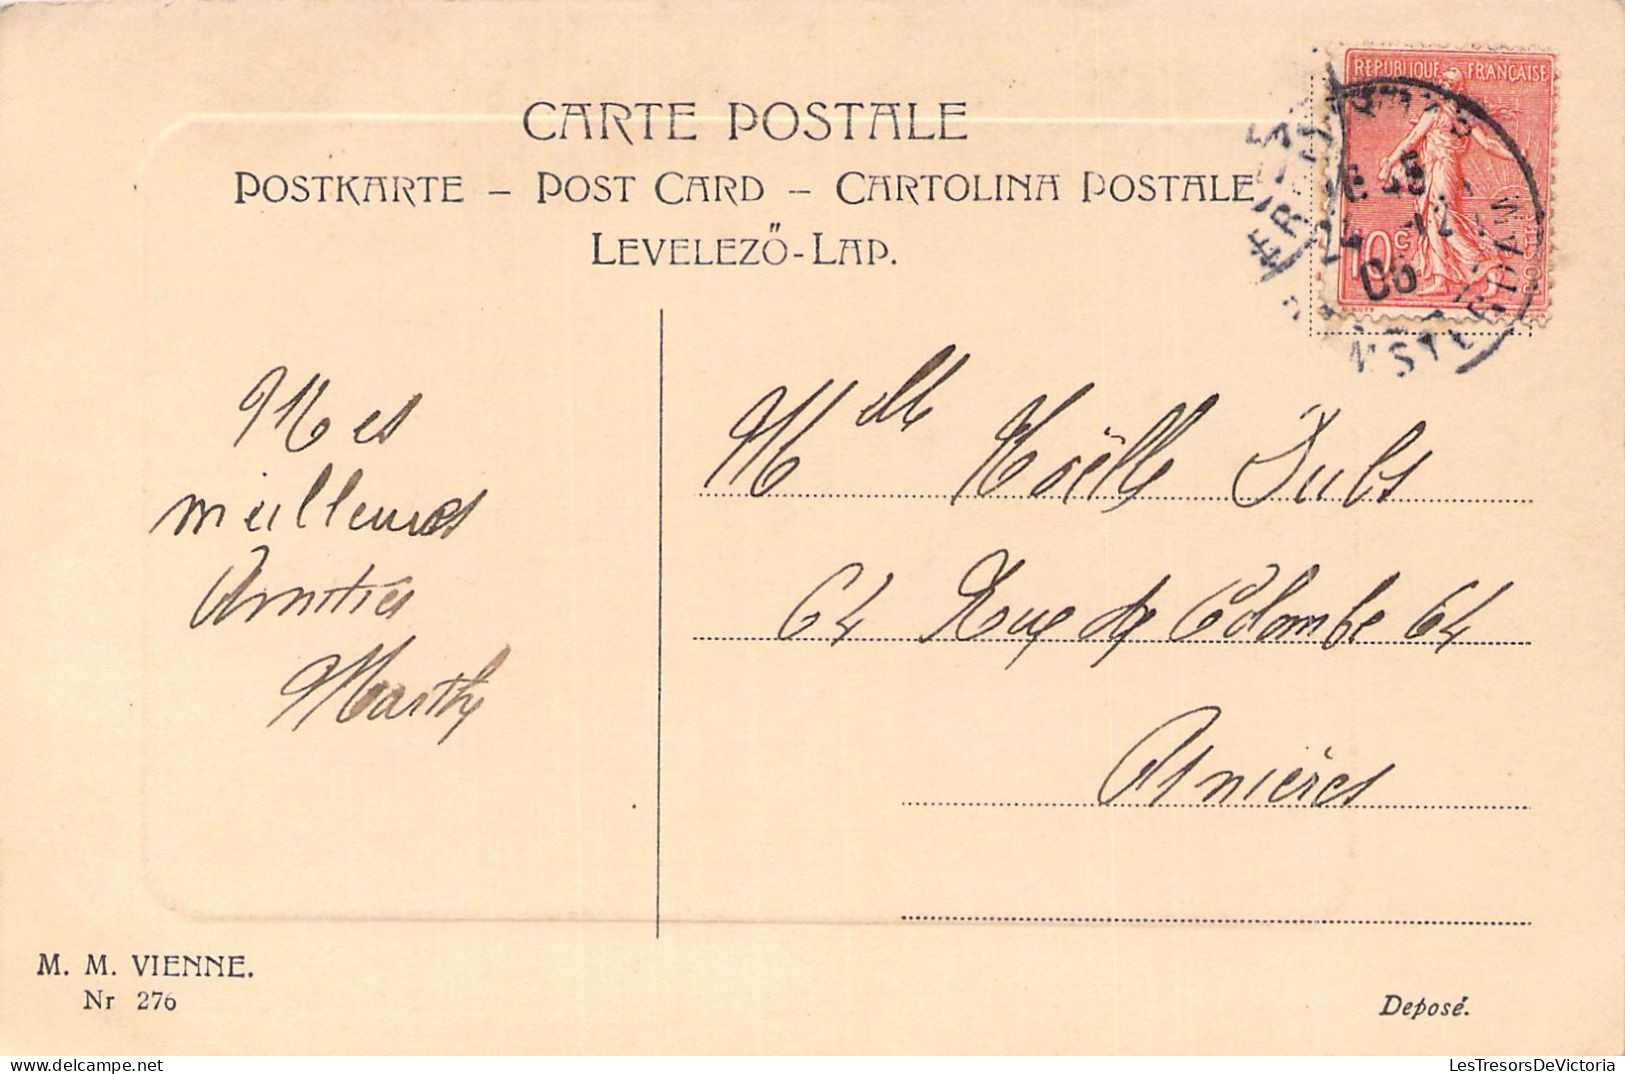 CARTE POSTALE
POSTKARTE – POST CARD – CARTOLINA POSTALE
LEVELEZŐ-LAP.
REPUBLIQUE FRANÇAISE
10c
POSTES
AMSTERDAM
12
06
Mes
meilleures
Amitiés
Marthe
Melle Noëlle Dubs
64 Rue de Colombe 64
Asnières
M. M. VIENNE.
Nr 276
Deposé.
LesTresorsDeVictoria